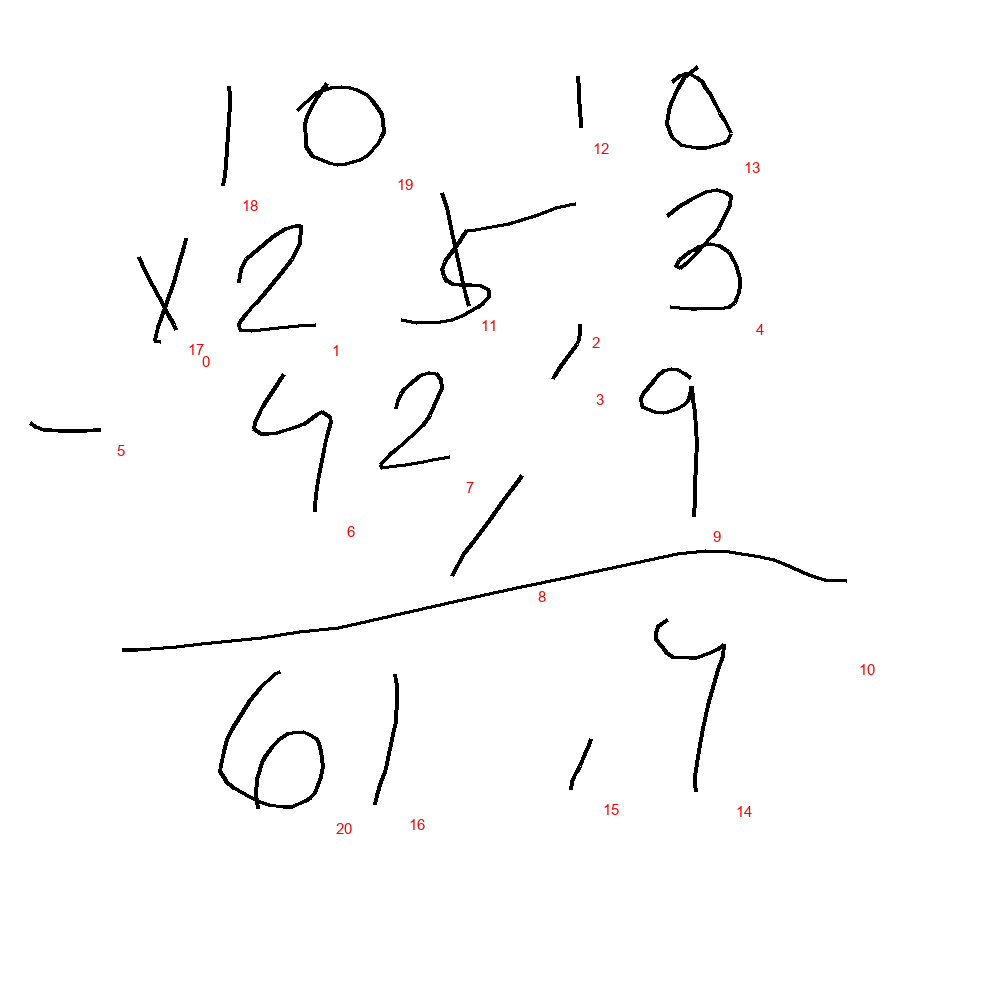 10 10
12 13
18 19
x253
17 0 1 11 2 4
- 42,9
5 6 7 3 9
8 10
61,4
20 16 15 14